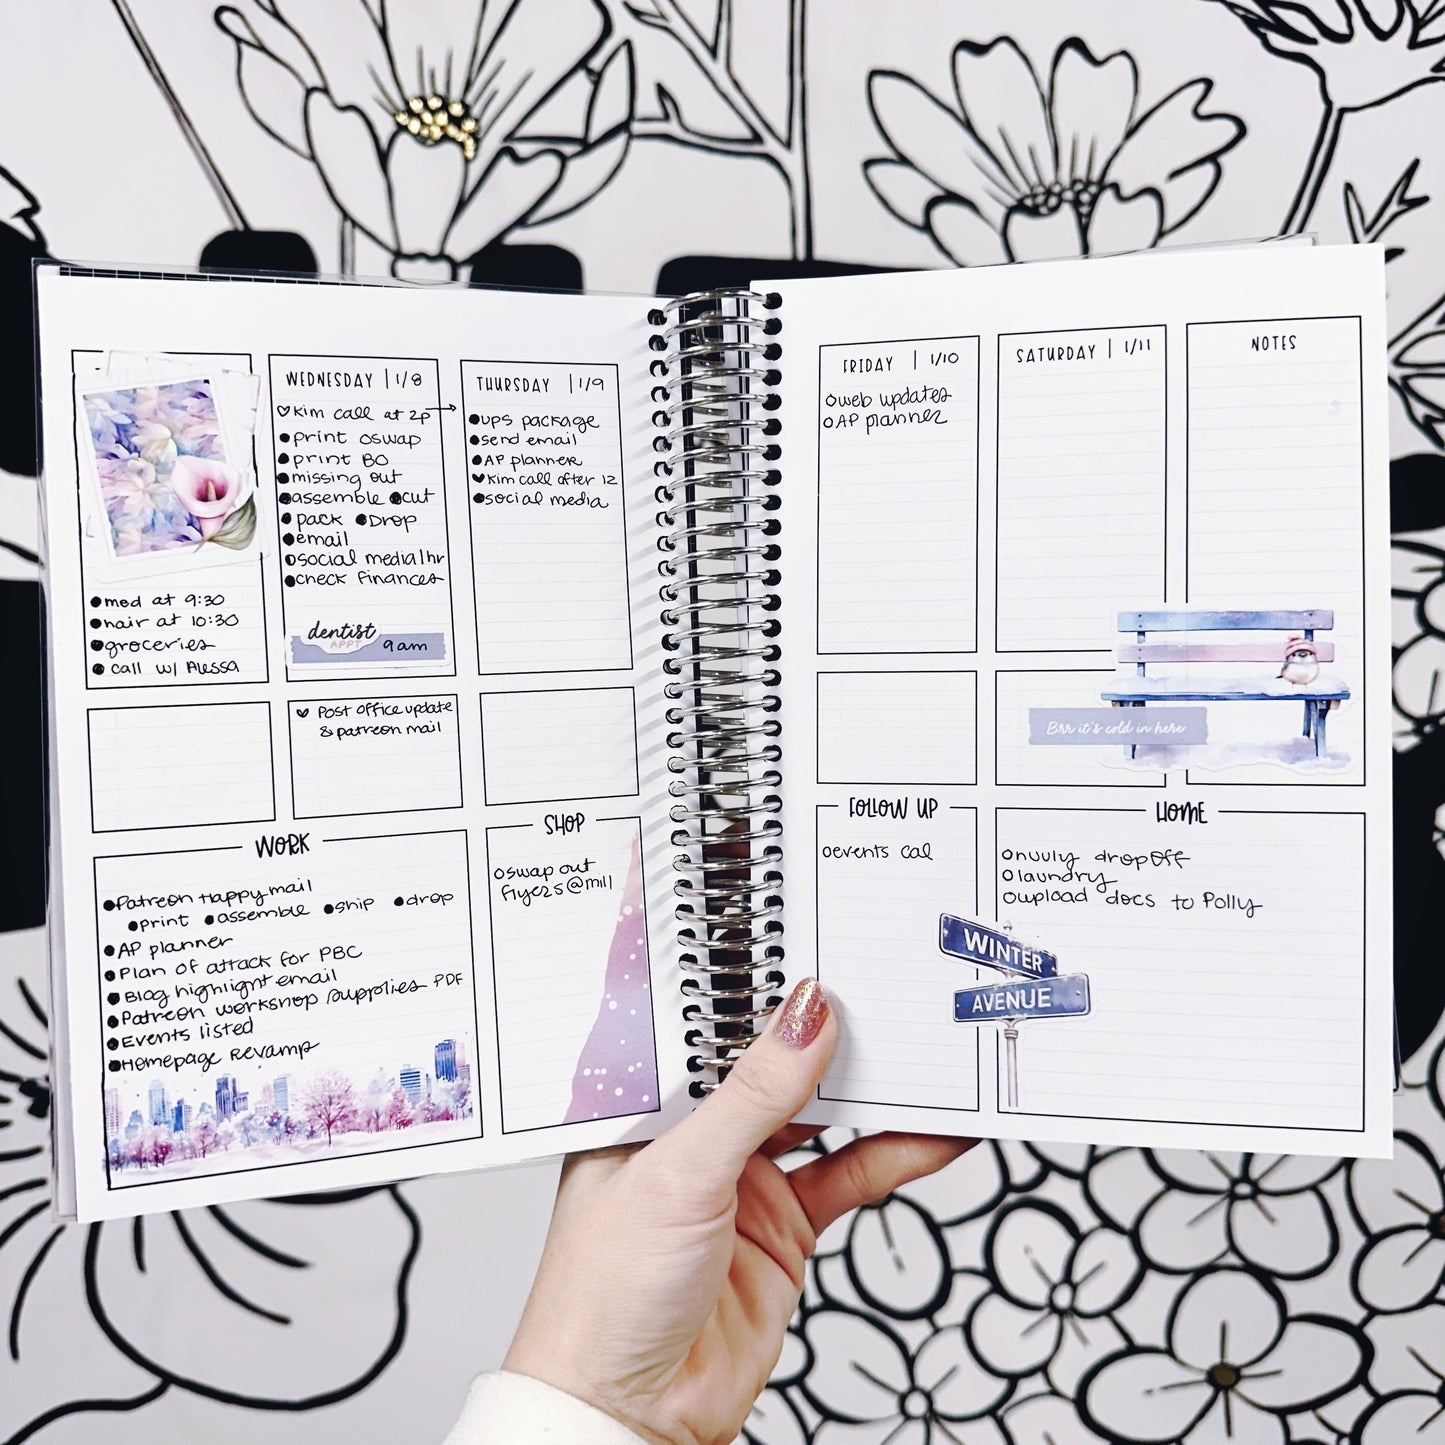 ● med at 9:30
● hair at 10:30
● groceries
● call w/ Alessa
WEDNESDAY | 1/8
♡ Kim call at 2p →
● print oswap
● print BO
● missing out
● assemble ● cut
● pack ● Drop
● email
○ social media 1hr
● check finances
dentist
APPT
9am
♥ Post office update
& patreon mail
THURSDAY | 1/9
● ups package
● send email
● AP planner
♥ Kim call after 12
● social media
WORK
● Patreon Happymail
● print ● assemble ● ship ● drop
● AP planner
● Plan of attack for PBC
● Blog highlight email
● Patreon workshop supplies PDF
● Events listed
● Homepage Revamp
SHOP
○ swap out
flyers @ mill
FRIDAY | 1/10
○ web updates
○ AP planner
SATURDAY | 1/11
NOTES
Brr it's cold in here
FOLLOW UP
○ events cal
HOME
○ nuuly drop off
○ laundry
○ upload docs to Polly
WINTER
AVENUE